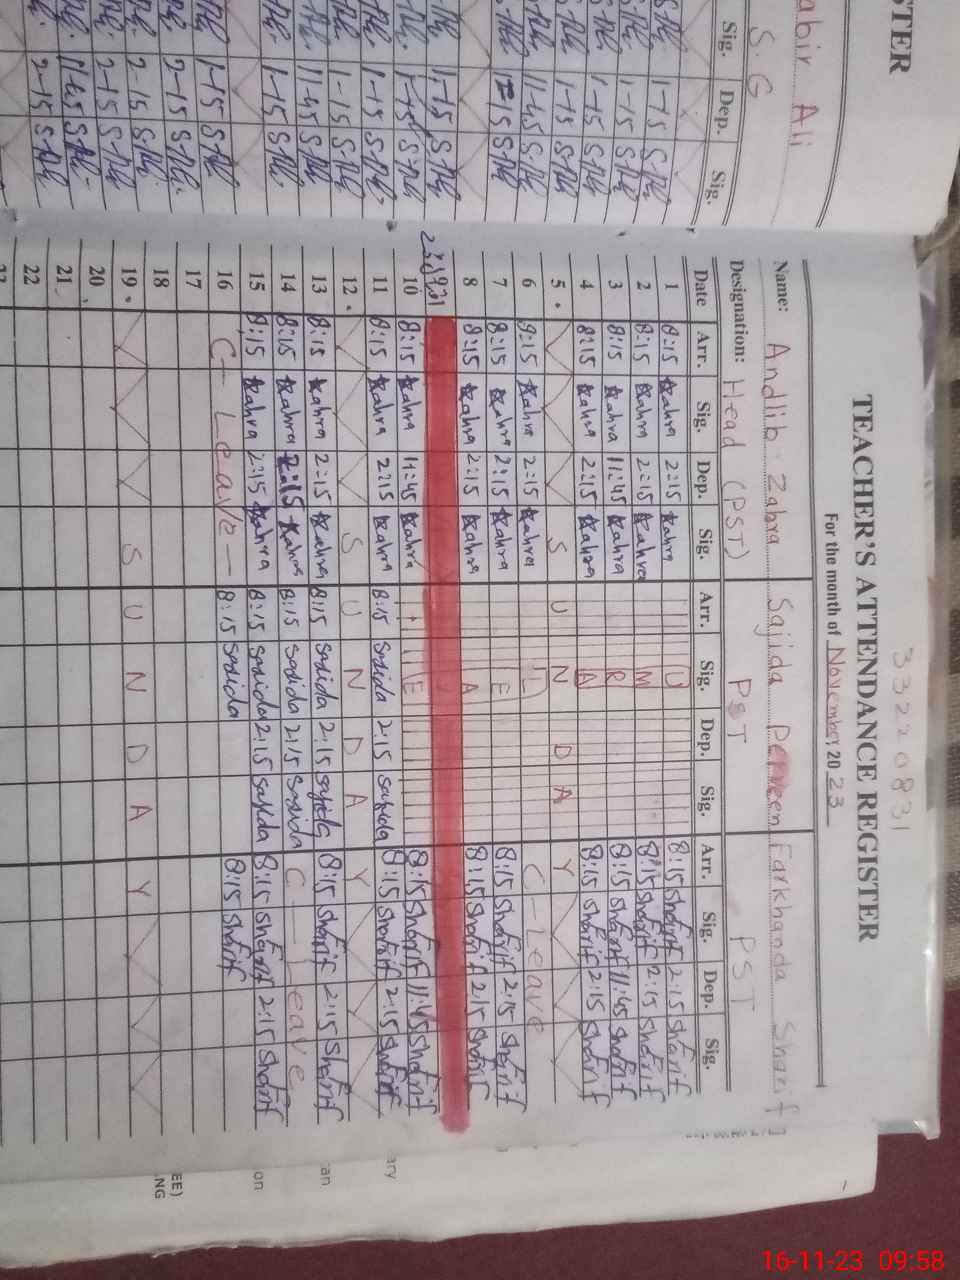 STER
abir Ali
S.G
Sig. Dep. Sig.
1-15
1-15
1-15
1-15
11-45
1-15
1-15
1-15
1-15
11-45
1-15
1-15
2-15
2-15
2-15
11-45
2-15
33220831
TEACHER'S ATTENDANCE REGISTER
For the month of November, 2023
Name: Andlib Zahra Sajida Perveen Farkhanda Sharif
Designation: Head (PST) PST PST
Date Arr. Sig. Dep. Sig. Arr. Sig. Dep. Sig. Arr. Sig. Dep. Sig.
1 8:15 Zahra 2:15 Zahra U 8:15 Sharif 2:15 Sharif
2 8:15 Zahra 2:15 Zahra M 8:15 Sharif 2:15 Sharif
3 8:15 Zahra 11:45 Zahra R 8:15 Sharif 11:45 Sharif
4 8:15 Zahra 2:15 Zahra A 8:15 Sharif 2:15 Sharif
5. S U N D A Y
6 8:15 Zahra 2:15 Zahra L C-Leave
7 8:15 Zahra 2:15 Zahra E 8:15 Sharif 2:15 Sharif
8 8:15 Zahra 2:15 Zahra A 8:15 Sharif 2:15 Sharif
10 8:15 Zahra 11:45 Zahra E 8:15 Sharif 11:45 Sharif
11 8:15 Zahra 2:15 Zahra 8:15 Sajida 2:15 Sajida 8:15 Sharif 2:15 Sharif
12. S U N D A Y
13 8:15 Zahra 2:15 Zahra 8:15 Sajida 2:15 Sajida 8:15 Sharif 2:15 Sharif
14 8:15 Zahra 2:15 Zahra 8:15 Sajida 2:15 Sajida C-Leave
15 8:15 Zahra 2:15 Zahra 8:15 Sajida 2:15 Sajida 8:15 Sharif 2:15 Sharif
16 C-Leave- 8:15 Sajida 8:15 Sharif
17
18
19. S U N D A Y
20
21
22
23
ary
an
on
EE)
NG
16-11-23 09:58